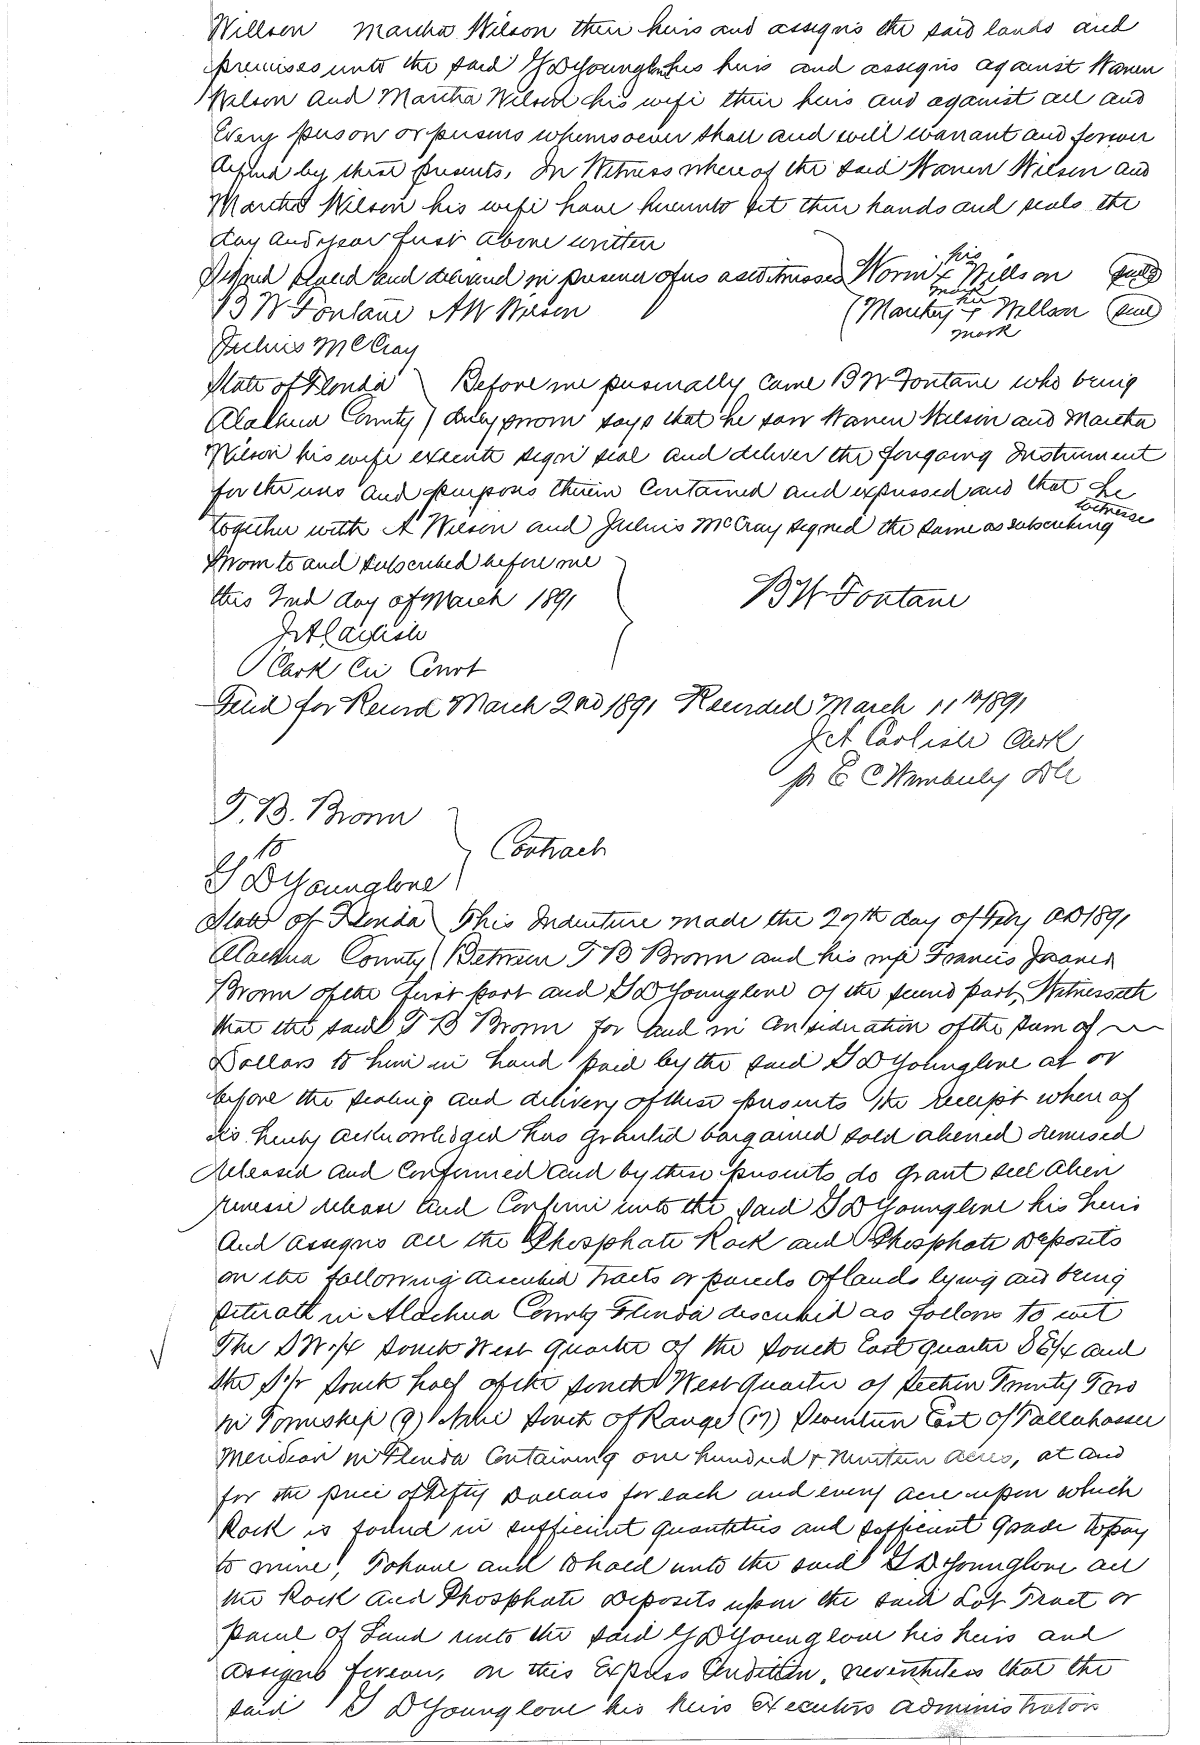 Willson Martha Wilson their heirs and assigns the said lands and
premises unto the said G D Younglove his heirs and assigns against Warren
Wilson And Martha Wilson his wife their heirs and against all and
Every person or persons whomsoever shall and will warrant and forever
defend by these presents, In Witness where of the said Warren Wilson and
Martha Wilson his wife have hereunto set their hands and seals the
day and year first above written
Signed sealed and delivered in presence of us as witnesses Worni his x mark Willson seal
B W Fontane A W Wilson (Marthey her x mark Willson seal
Julius McCray
State of Florida Before me personally came B W Fontane who being
Alachua County duly sworn says that he saw Warren Wilson and Martha
Wilson his wife execute sign seal and deliver the foregoing Instrument
for the uses and purposes therein Contained and expressed and that he
together with A Wilson and Julius McCray signed the same as subscribing witnesse
Sworn to and subscribed before me
this 2nd day of March 1891 B W Fontane
J A Carlisle
Clerk Cir Court
Filed for Record March 2nd 1891 Recorded March 11th 1891
J A Carlisle Clerk
pr E C Wimberly DC
T. B. Brown
to Contract
G D Younglove
State of Florida This Indenture made the 27th day of Feby AD 1891
Alachua County Between T B Brown and his wife Francis
Brown of the first part and G D Younglove of the second part, Witnesseth
that the said T B Brown for and in Consideration of the sum of
Dollars to him in hand paid by the said G D Younglove at or
before the sealing and delivery of these presents the receipt where of
is hereby acknowledged has granted bargained sold aliened remised
released and Confirmed and by these presents do grant sell alien
remise release and Confirm unto the said G D Younglove his heirs
And assigns all the Phosphate Rock and Phosphate Deposits
on the following described tracts or parcels of lands lying and being
situate in Alachua County Florida described as follows to wit
The S W 1/4 South West quarter of the South East quarter S E 1/4 and
the S 1/2 South half of the South West Quarter of Section Twenty Two
in Township (9) Nine South of Range (17) Seventeen East of Tallahassee
Meridian in Florida Containing one hundred & Nineteen acres, at and
for the price of Fifty Dollars for each and every acre upon which
Rock is found in sufficient quantities and sufficient grade to pay
to mine, To have and to hold unto the said G D Younglove all
the Rock and Phosphate Deposits upon the said Lot Tract or
parcel of Land unto the said G D Younglove his heirs and
assigns forever, on this Express Condition, nevertheless that the
said G D Younglove his heirs Executors administrators